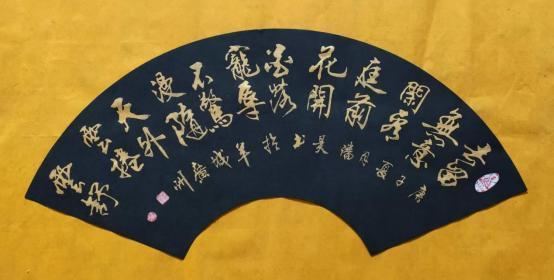 去留
無意
閑看
庭前
花開
花落
寵辱
不驚
漫隨
天外
雲捲
雲舒
庚子夏月潘書於羊城廣州